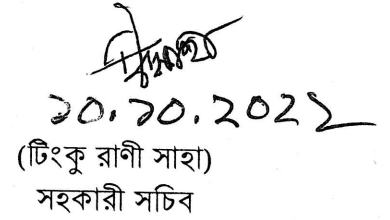 ১০.১০.২০২২
(টিংকু রাণী সাহা)
সহকারী সচিব